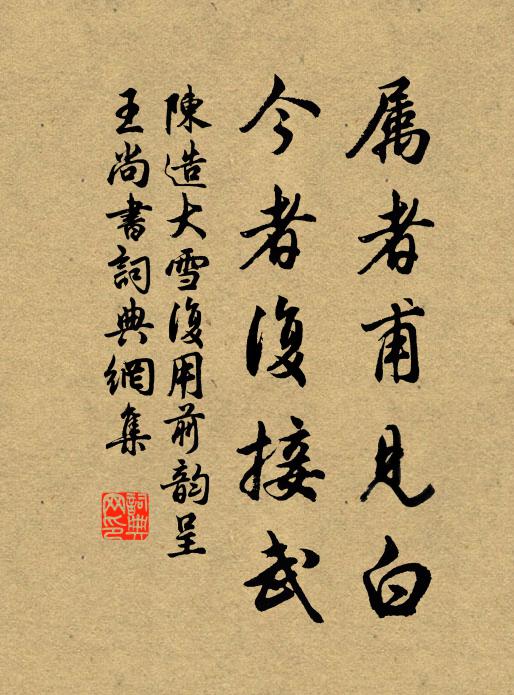 属者甫见白
今者復接武
陳造大雪復用前韵呈
王尚書詞典網集
詞典網印